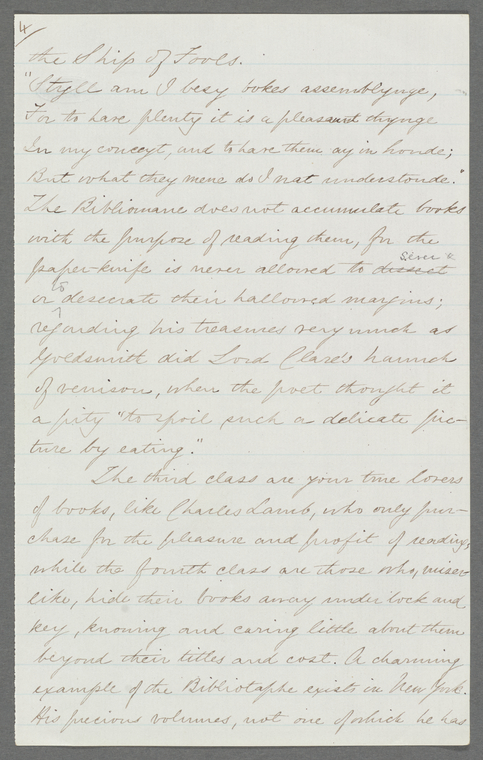 4
the Ship of Fools.
"Styll am I besy bokes assemblynge,
For to have plenty it is a pleasaunt thynge
In my conceyt, and to have them ay in honde;
But what they mene do I nat understonde."
The Bibliomane does not accumulate books
with the purpose of reading them, for the
paper-knife is never allowed to dissect sever
or to desecrate their hallowed margins;
regarding his treasures very much as
Goldsmith did Lord Clare's haunch
of venison, when the poet thought it
a pity "to spoil such a delicate pic-
ture by eating."
The third class are your true lovers
of books, like Charles Lamb, who only pur-
chase for the pleasure and profit of reading,
while the fourth class are those who, miser-
like, hide their books away under lock and
key, knowing and caring little about them
beyond their titles and cost. A charming
example of the Bibliotaphe exists in New York.
His precious volumes, not one of which he has